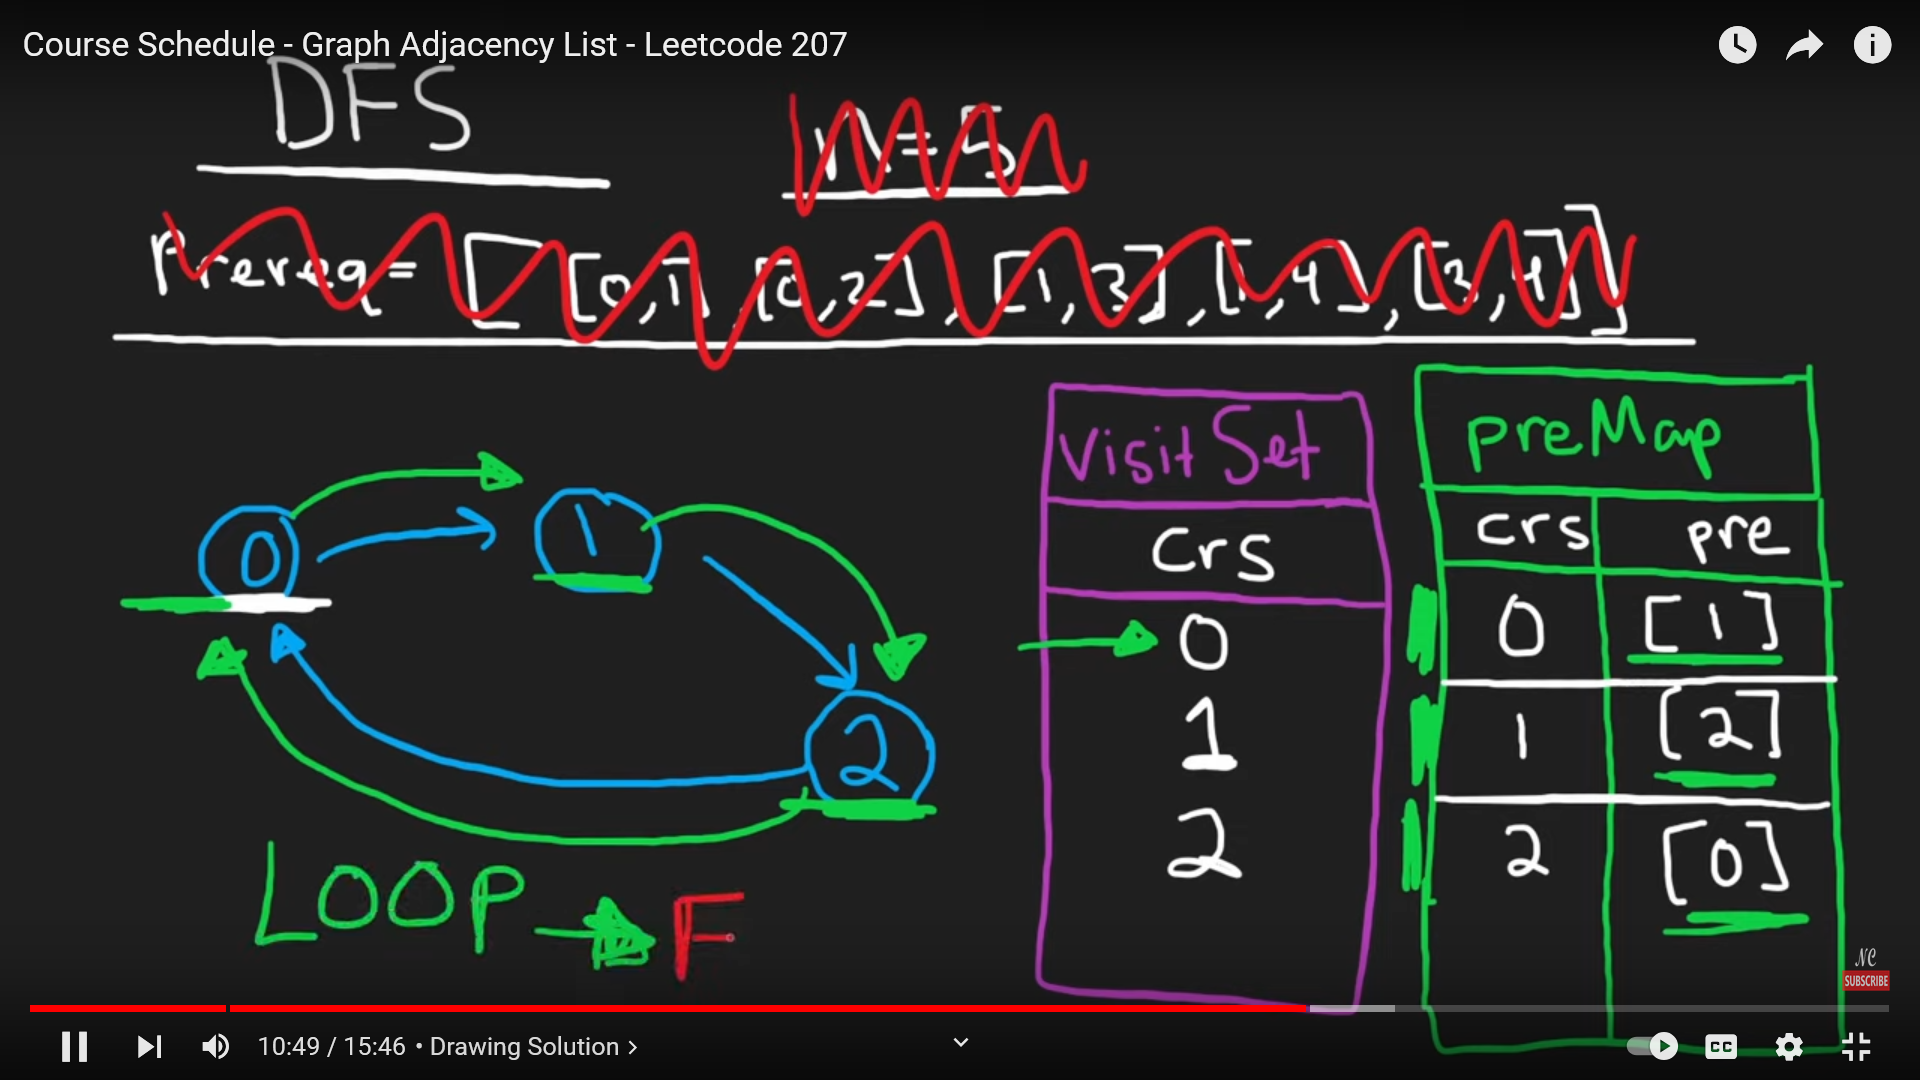 Course Schedule - Graph Adjacency List - Leetcode 207
DFS
n=5
Prereq= [[0,1],[0,2],[1,3],[1,4],[3,4]]
0
1
2
LOOP
F
Visit Set
crs
0
1
2
preMap
crs pre
0 [1]
1 [2]
2 [0]
NC
SUBSCRIBE
10:49 / 15:46 • Drawing Solution >
CC